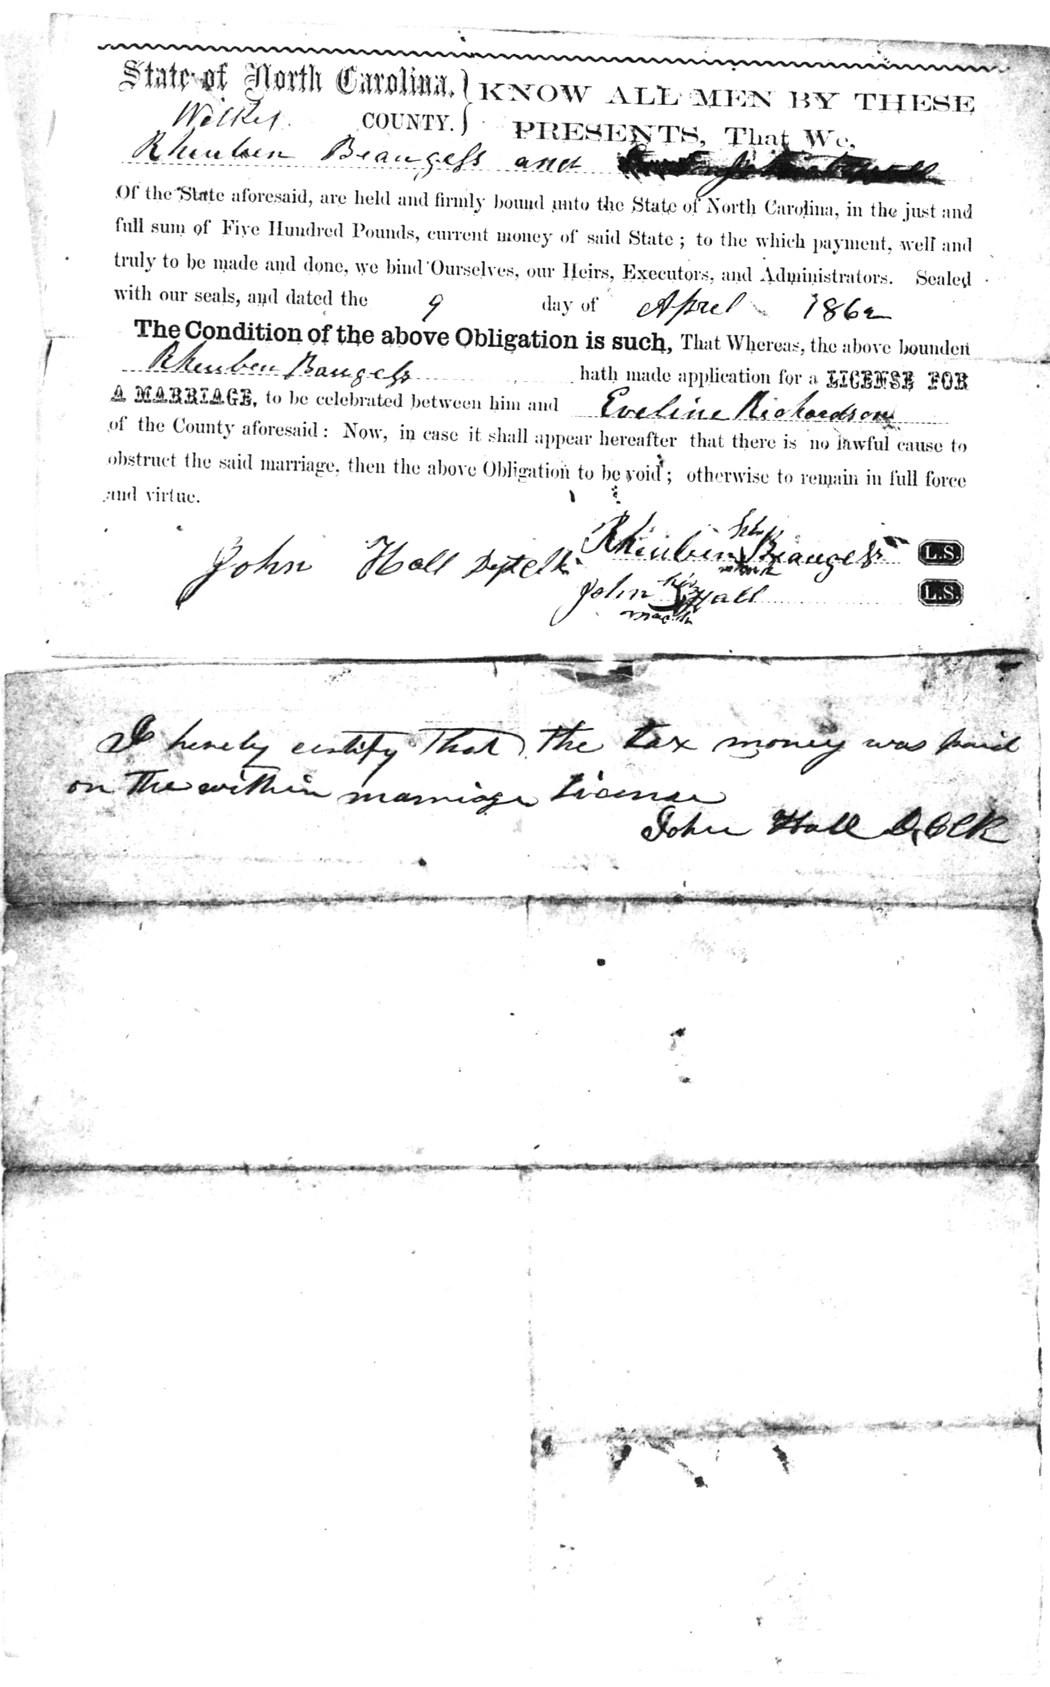 State of North Carolina, } KNOW ALL MEN BY THESE
Wilkes COUNTY. } PRESENTS, That We,
Rheuben Beaugess and
Of the State aforesaid, are held and firmly bound unto the State of North Carolina, in the just and
full sum of Five Hundred Pounds, current money of said State; to the which payment, well and
truly to be made and done, we bind Ourselves, our Heirs, Executors, and Administrators. Sealed
with our seals, and dated the 9 day of April 1862
The Condition of the above Obligation is such, That Whereas, the above bounden
Rheuben Baugess hath made application for a LICENSE FOR
A MARRIAGE, to be celebrated between him and Eveline Richardson
of the County aforesaid: Now, in case it shall appear hereafter that there is no lawful cause to
obstruct the said marriage, then the above Obligation to be void; otherwise to remain in full force
and virtue.
his
John Hall Dept Clk Rheuben X Beaugess L.S.
mark
his
John Hall L.S.
mark
I hereby certify That the tax money was paid
on the within marriage License
John Hall D, Clk